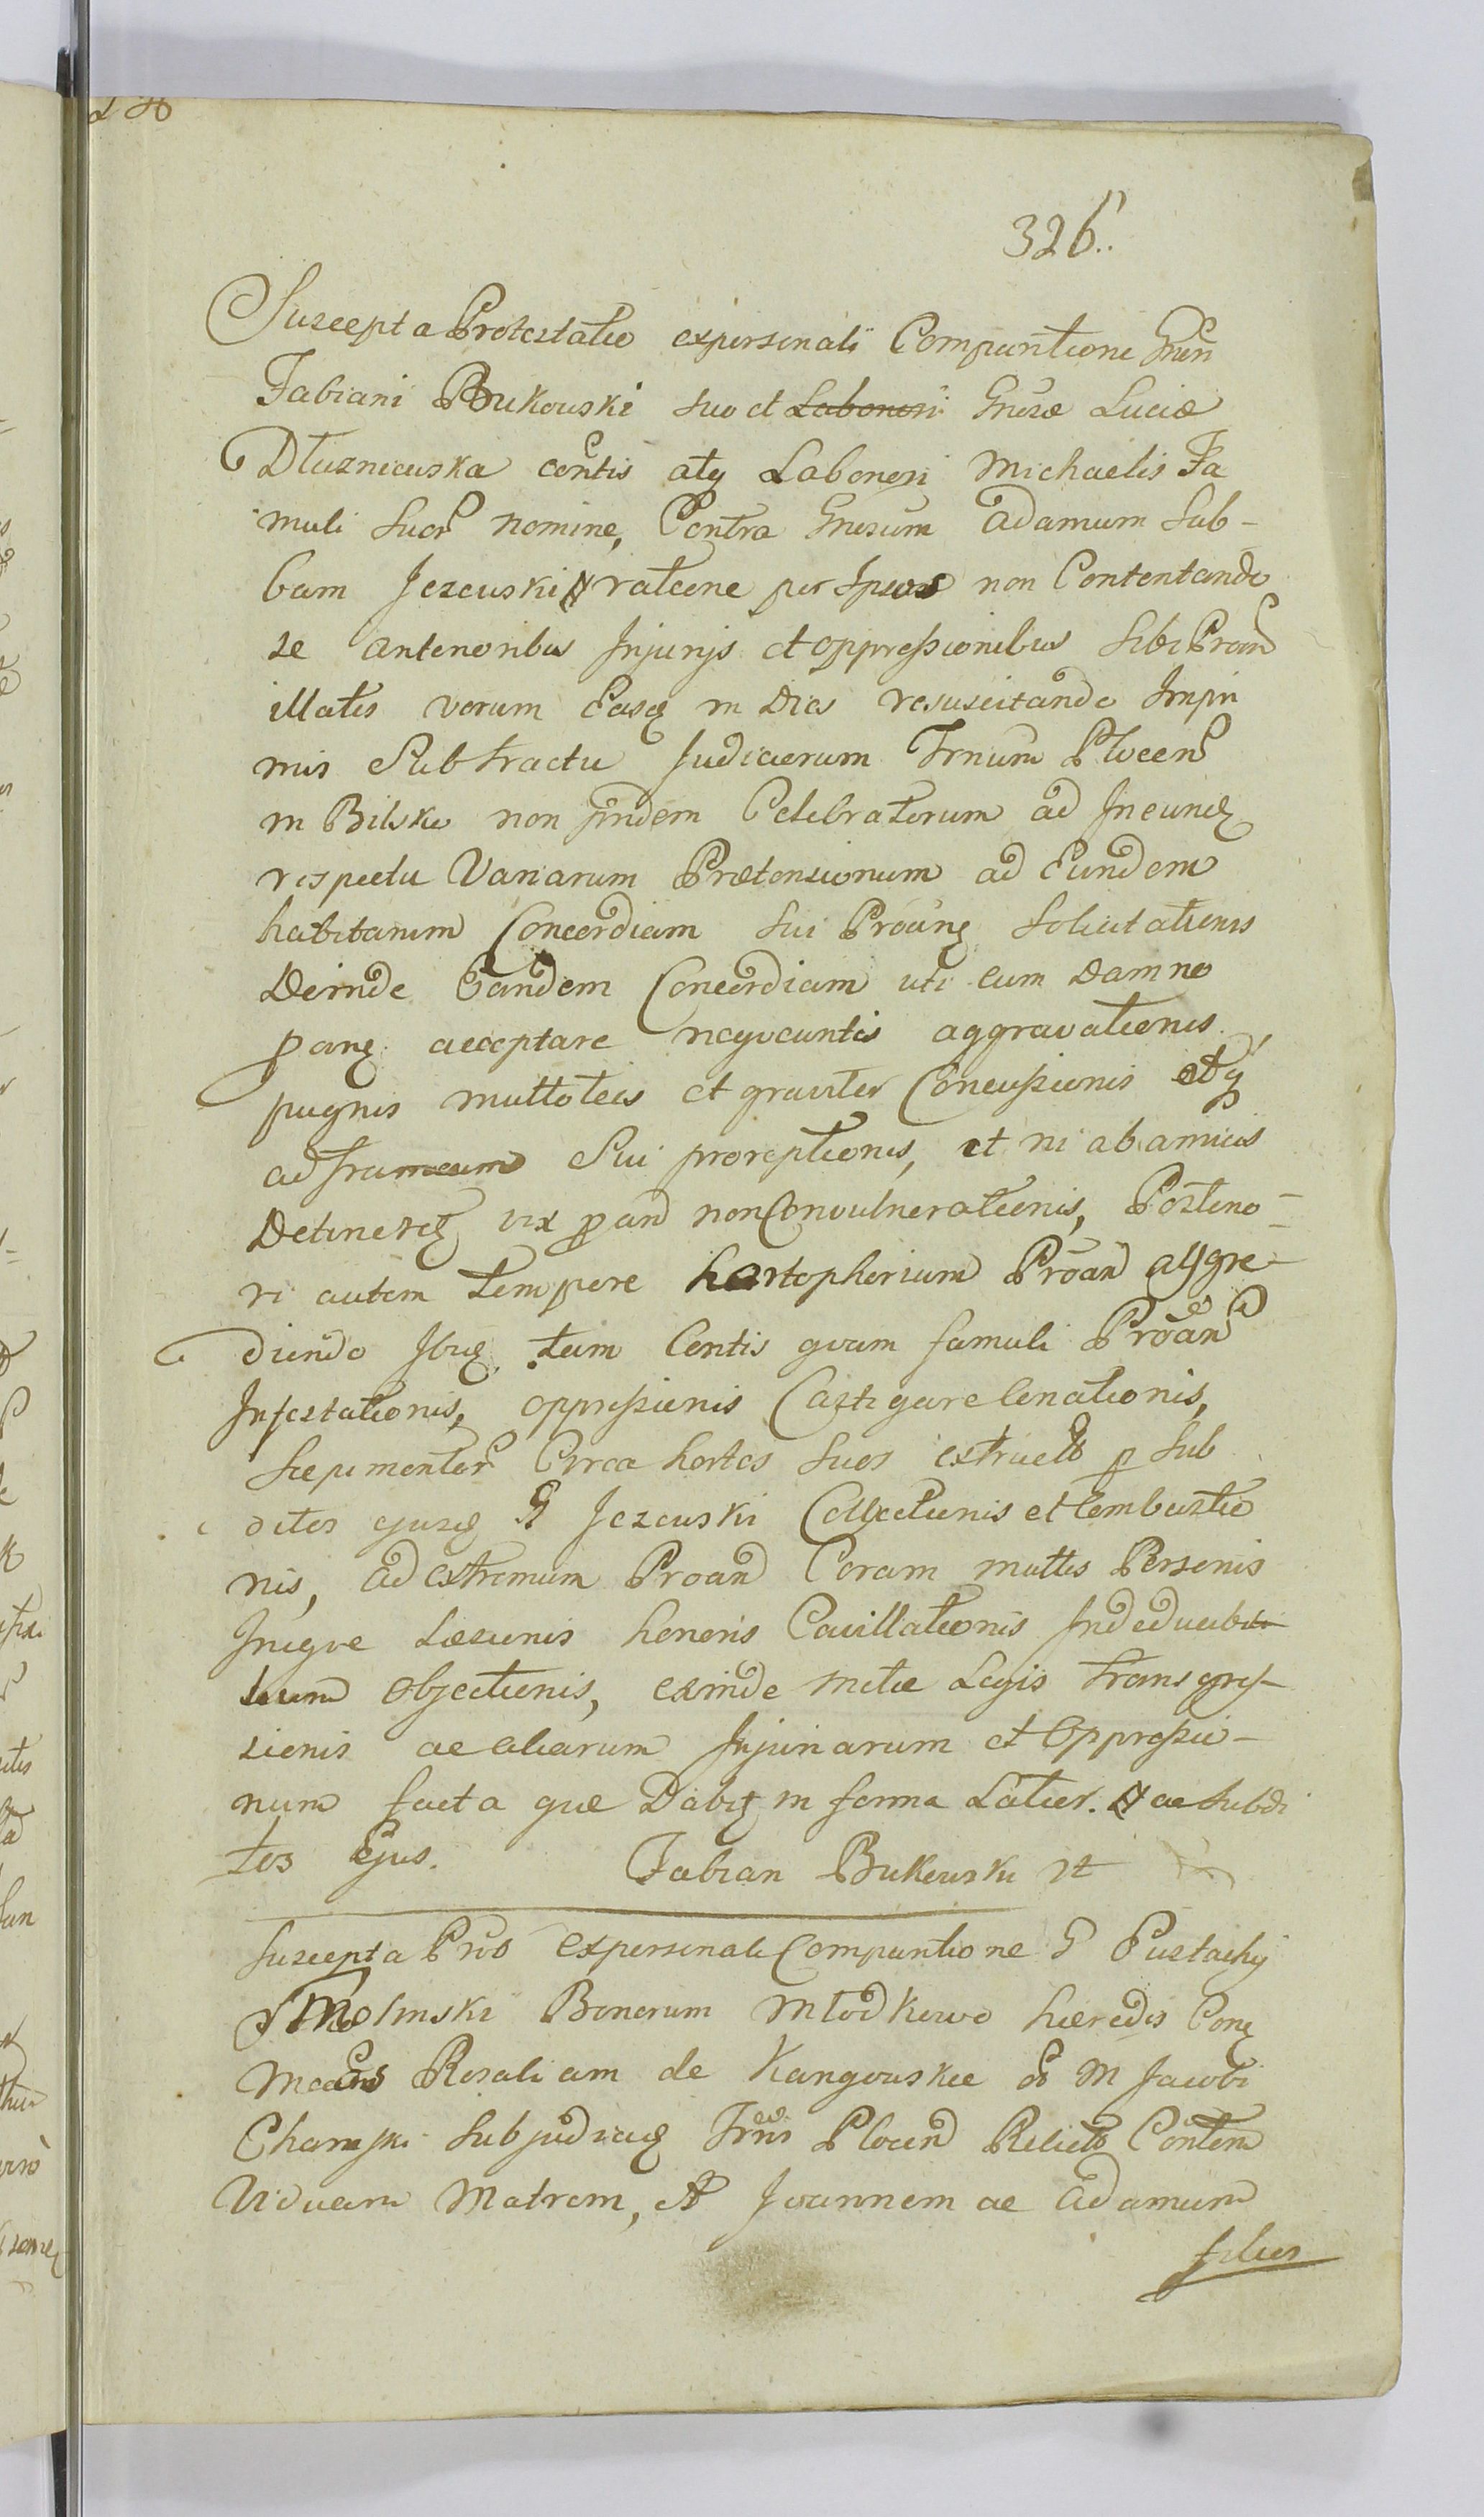 326.
Suscepta Protestatio expersonali Comparitione Gnēn
Fabiani Bukowski suo et Laboriosi Gnesæ Luciæ
Dłuzniewska Contis atq Laboriosi Michaelis Fa
muli Suor nomine, Contra Gnesum Adamum Sub-
bam Jezewski ratione per Ipsos non Contentando
se anterioribus Injurijs et oppressionibus sibi Proan
illatis verum Easq in Dies resuscitando Impri
mis Sub tractu Judiciorum Trnum Plocen
in Bilsko non pridem Celebratorum ad Ineunq
respectu Variarum Prætensionum ad Eundem
habitarum Concordiam Sui Proang Solicitationis
Deinde Eandem Concordiam uti cum Damno
Pang acceptare nequeuntis aggravationis,
pugnis multoties et graviter Concussionis etq
ad frameam Sui proreptionis, et ni ab amicis
Detineretq vix pan non Convulnerationis, Posterio-
ri autem tempore hortopherium Proan aggre-
diendo Ibiq tam Contis qvam famuli Proan
Infestationis, oppressionis Castigare Conationis,
Sepimentor Circa hortos suos extructo p Sub
ditos ejusq G Jezewski Collectionis et Combustio
nis, Ad extremum Proan Coram multis Personis
Inique Læsionis honoris Cavillationis Indeducibi
lium Objectionis, exinde metæ Legis transgres-
sionis ac aliarum Injuriarum et Oppressio-
num facta quæ Dabitq in forma Latior. ac Subdi
tos Ejus. Fabian Bukowski
Suscepta Prõ Expersonali Comparitione G Eustachij
Smolinski Bonorum Mlodkowo hæredis Conq
Rosaliam de Kangowskie M Jacobi
Chamski Subjudicis Trni Plocen Relicto Contem
Viduam Matrem, et Joannem ac Adamum
filios